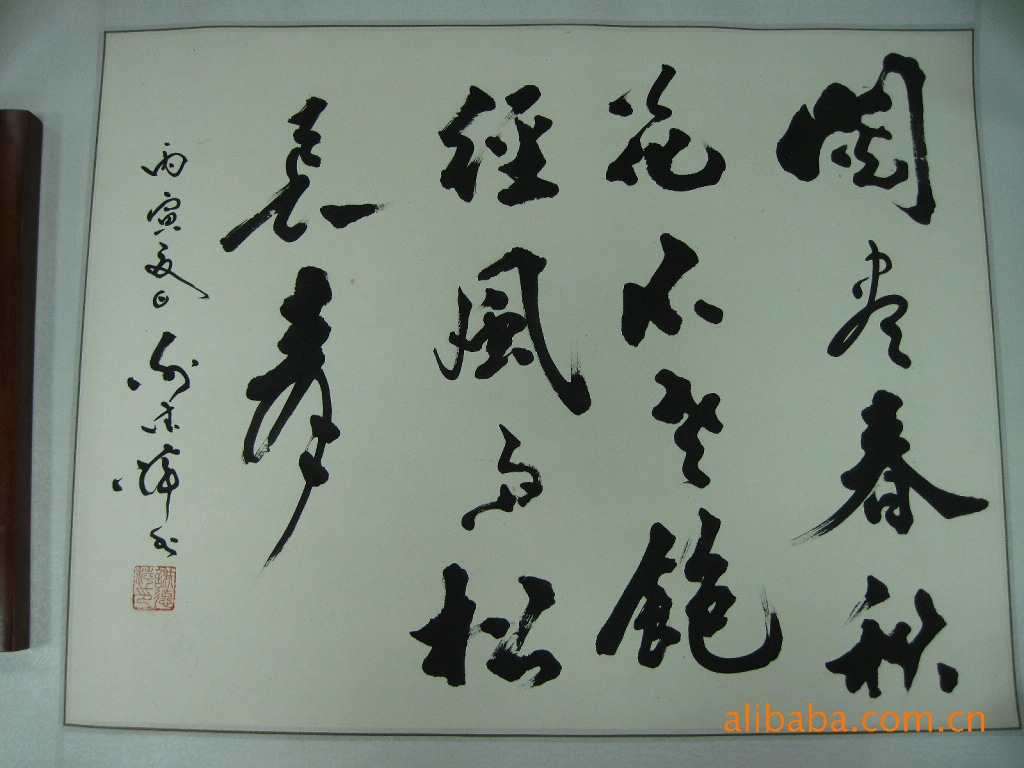 閲尽春秋
花不老飽
經風雨松
長壽
丙寅夏日
alibaba.com.cn